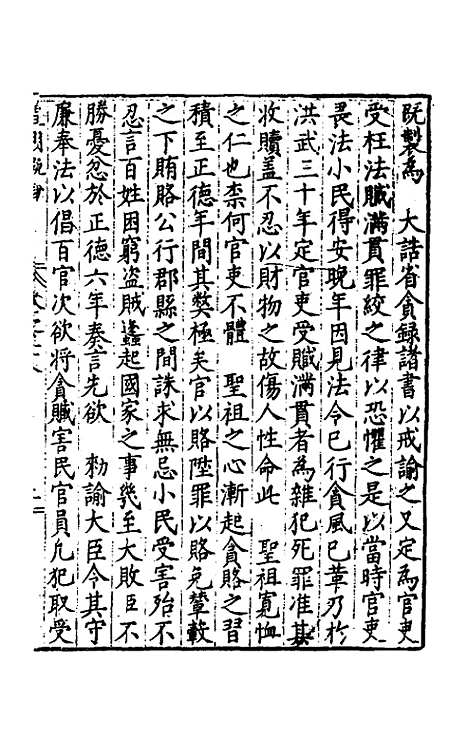 既製為　大誥省貪錄諸書以戒諭之又定為官吏
受枉法贓滿貫罪絞之律以恐懼之是以當時官吏
畏法小民得安晚年因見法令已行貪風已革乃於
洪武三十年定官吏受贓滿貫者為雜犯死罪准其
收贖蓋不忍以財物之故傷人性命此　聖祖寬恤
之仁也柰何官吏不體　聖祖之心漸起貪賂之習
積至正德年間其弊極矣官以賂陞罪以賂免輦轂
之下賄賂公行郡縣之間誅求無忌小民受害殆不
忍言百姓困窮盗賊蠭起國家之事幾至大敗臣不
勝憂忿於正德六年奏言先欲　勑諭大臣令其守
廉奉法以倡百官次欲將貪贓害民官員凡犯取受